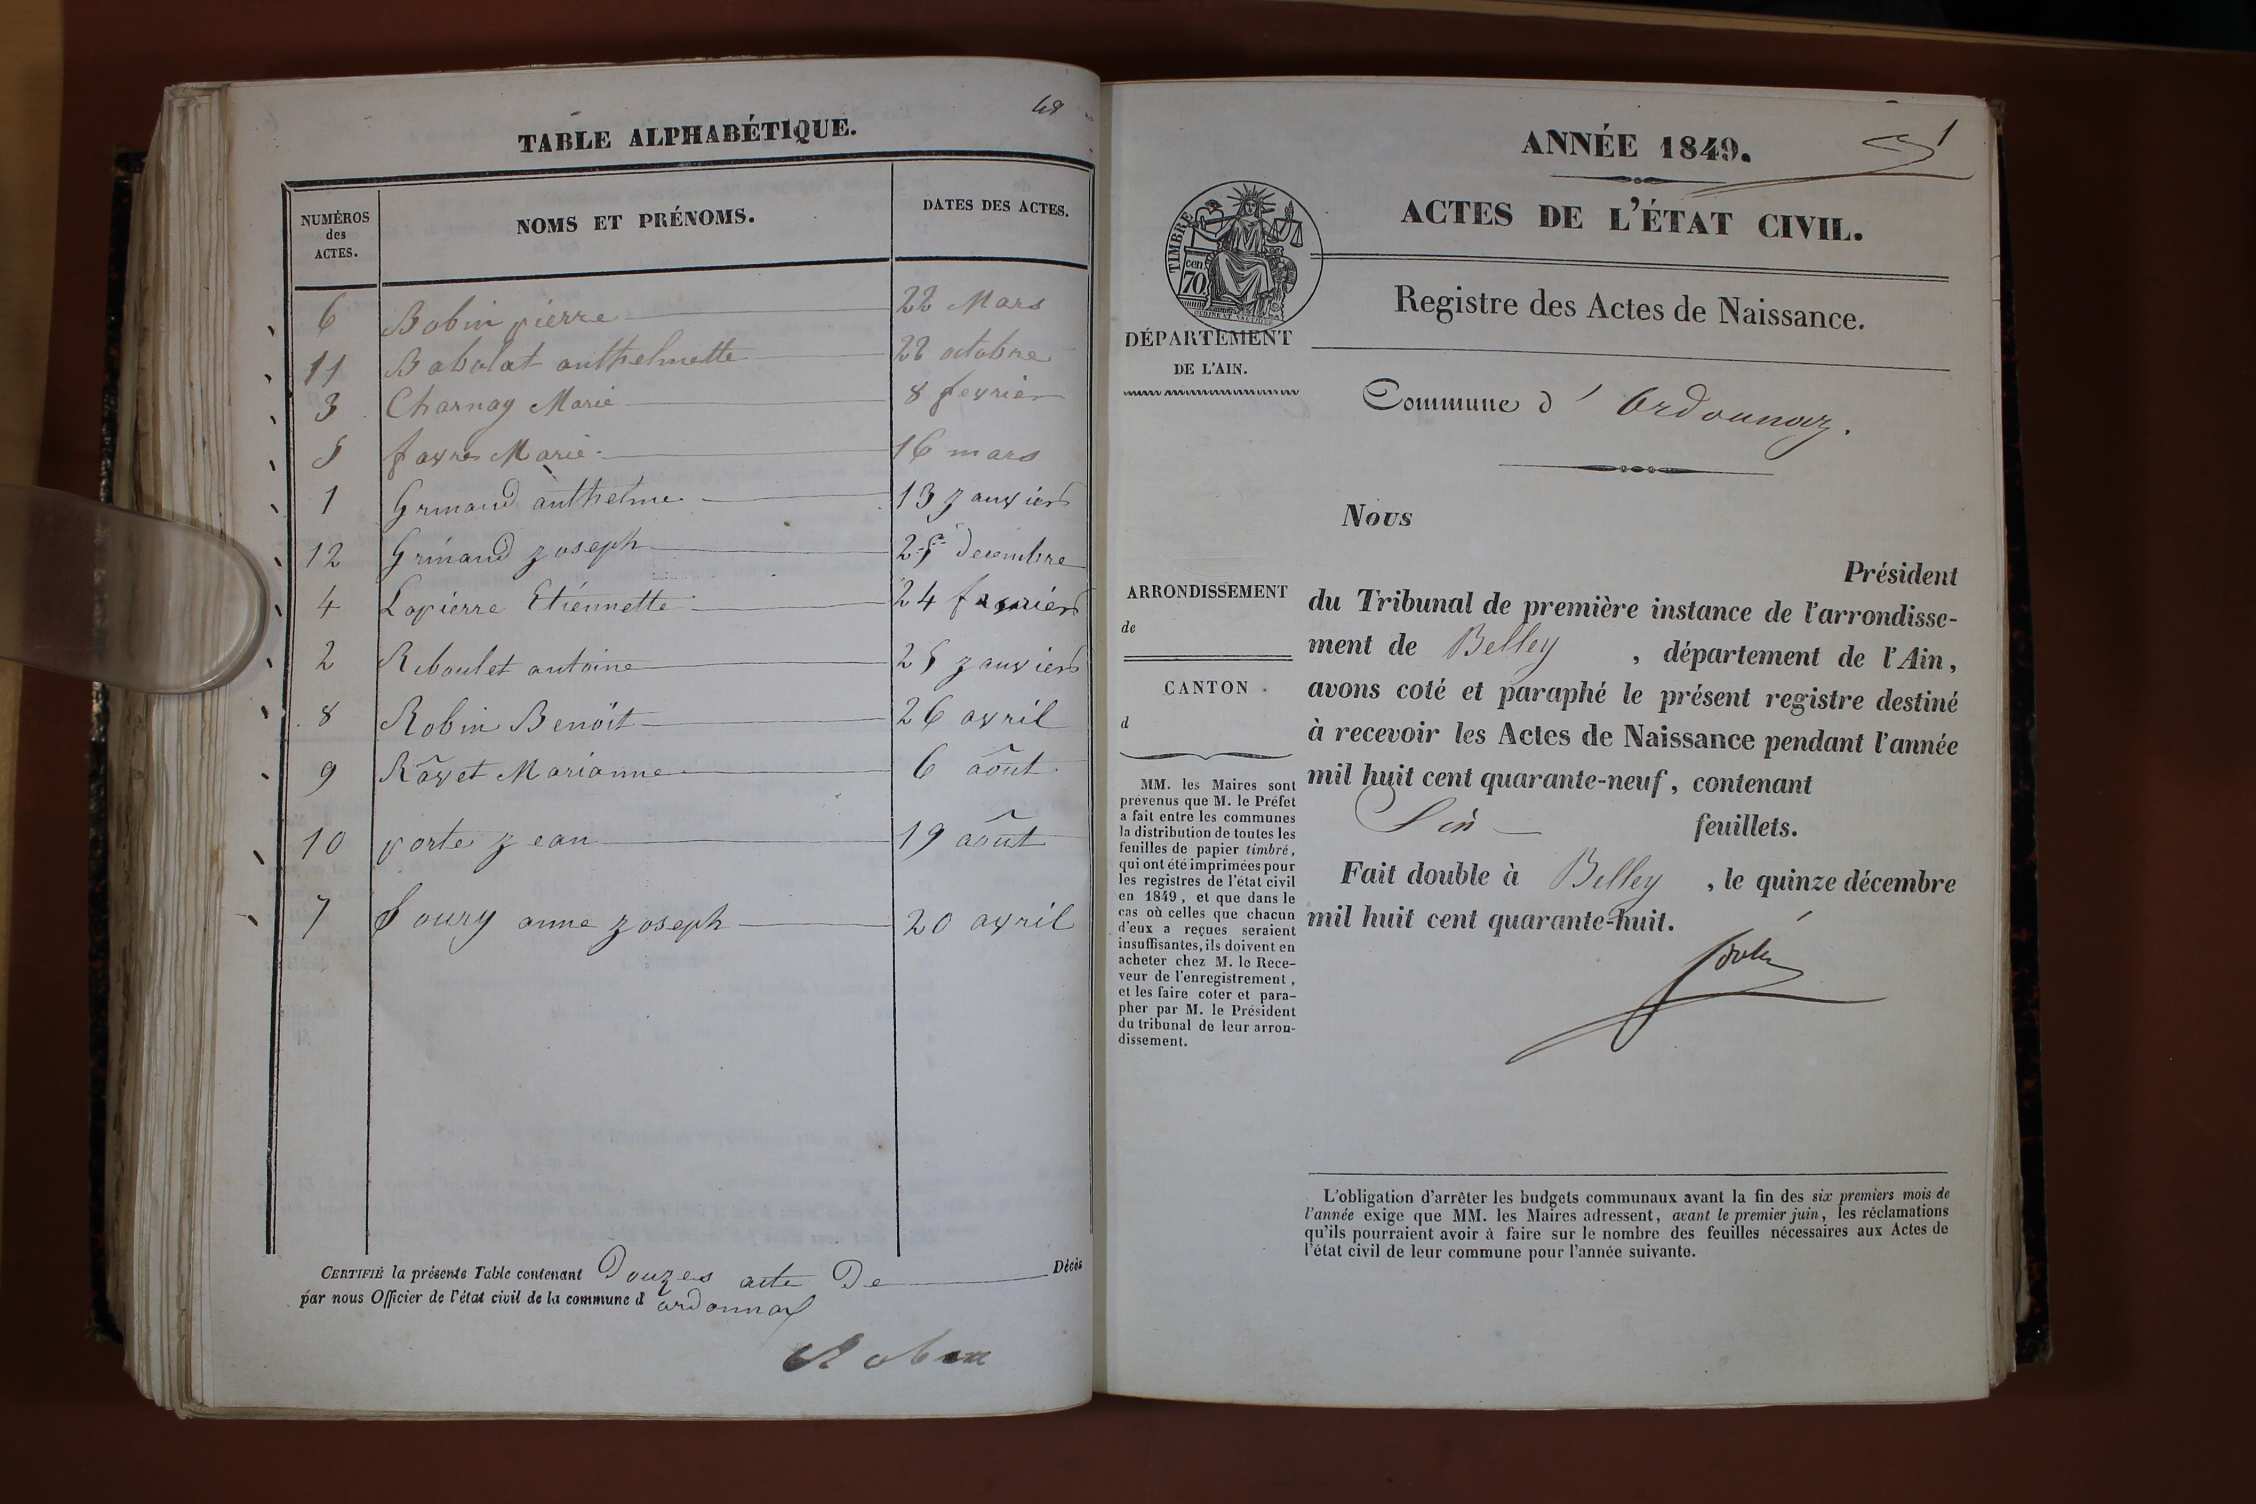 48
TABLE ALPHABÉTIQUE.
NUMÉROS des ACTES. NOMS ET PRÉNOMS. DATES DES ACTES.
6 Bobin pierre 22 Mars
11 Babolat anthelmette 22 octobre
3 Charnay Marie 8 fevrier
5 favre Marie 16 mars
1 Grinand anthelme 13 janvier
12 Grinand joseph 25 decembre
4 Lapierre Etiennette 24 fevrier
2 Reboulet antoine 25 janvier
8 Robin Benoit 26 avril
9 Ravet Marianne 6 août
10 porte jean 19 août
7 Soury anne joseph 20 avril
CERTIFIÉ la présente Table contenant Douzes acte De Décès
par nous Officier de l'état civil de la commune d ordonnax
Robin
1
ANNÉE 1849.
ACTES DE L'ÉTAT CIVIL.
TIMBRE
70 cen
Registre des Actes de Naissance.
DÉPARTEMENT
DE L'AIN.
Commune d' Ordonnaz.
Nous
Président
ARRONDISSEMENT
de
CANTON
d
du Tribunal de première instance de l'arrondisse-
ment de Belley , département de l'Ain,
avons coté et paraphé le présent registre destiné
à recevoir les Actes de Naissance pendant l'année
mil huit cent quarante-neuf, contenant
feuillets.
Fait double à Belley , le quinze décembre
mil huit cent quarante-huit.
MM. les Maires sont
prévenus que M. le Préfet
a fait entre les communes
la distribution de toutes les
feuilles de papier timbré,
qui ont été imprimées pour
les registres de l'état civil
en 1849, et que dans le
cas où celles que chacun
d'eux a reçues seraient
insuffisantes, ils doivent en
acheter chez M. le Rece-
veur de l'enregistrement,
et les faire coter et para-
pher par M. le Président
du tribunal de leur arron-
dissement.
L'obligation d'arrêter les budgets communaux avant la fin des six premiers mois de
l'année exige que MM. les Maires adressent, avant le premier juin, les réclamations
qu'ils pourraient avoir à faire sur le nombre des feuilles nécessaires aux Actes de
l'état civil de leur commune pour l'année suivante.